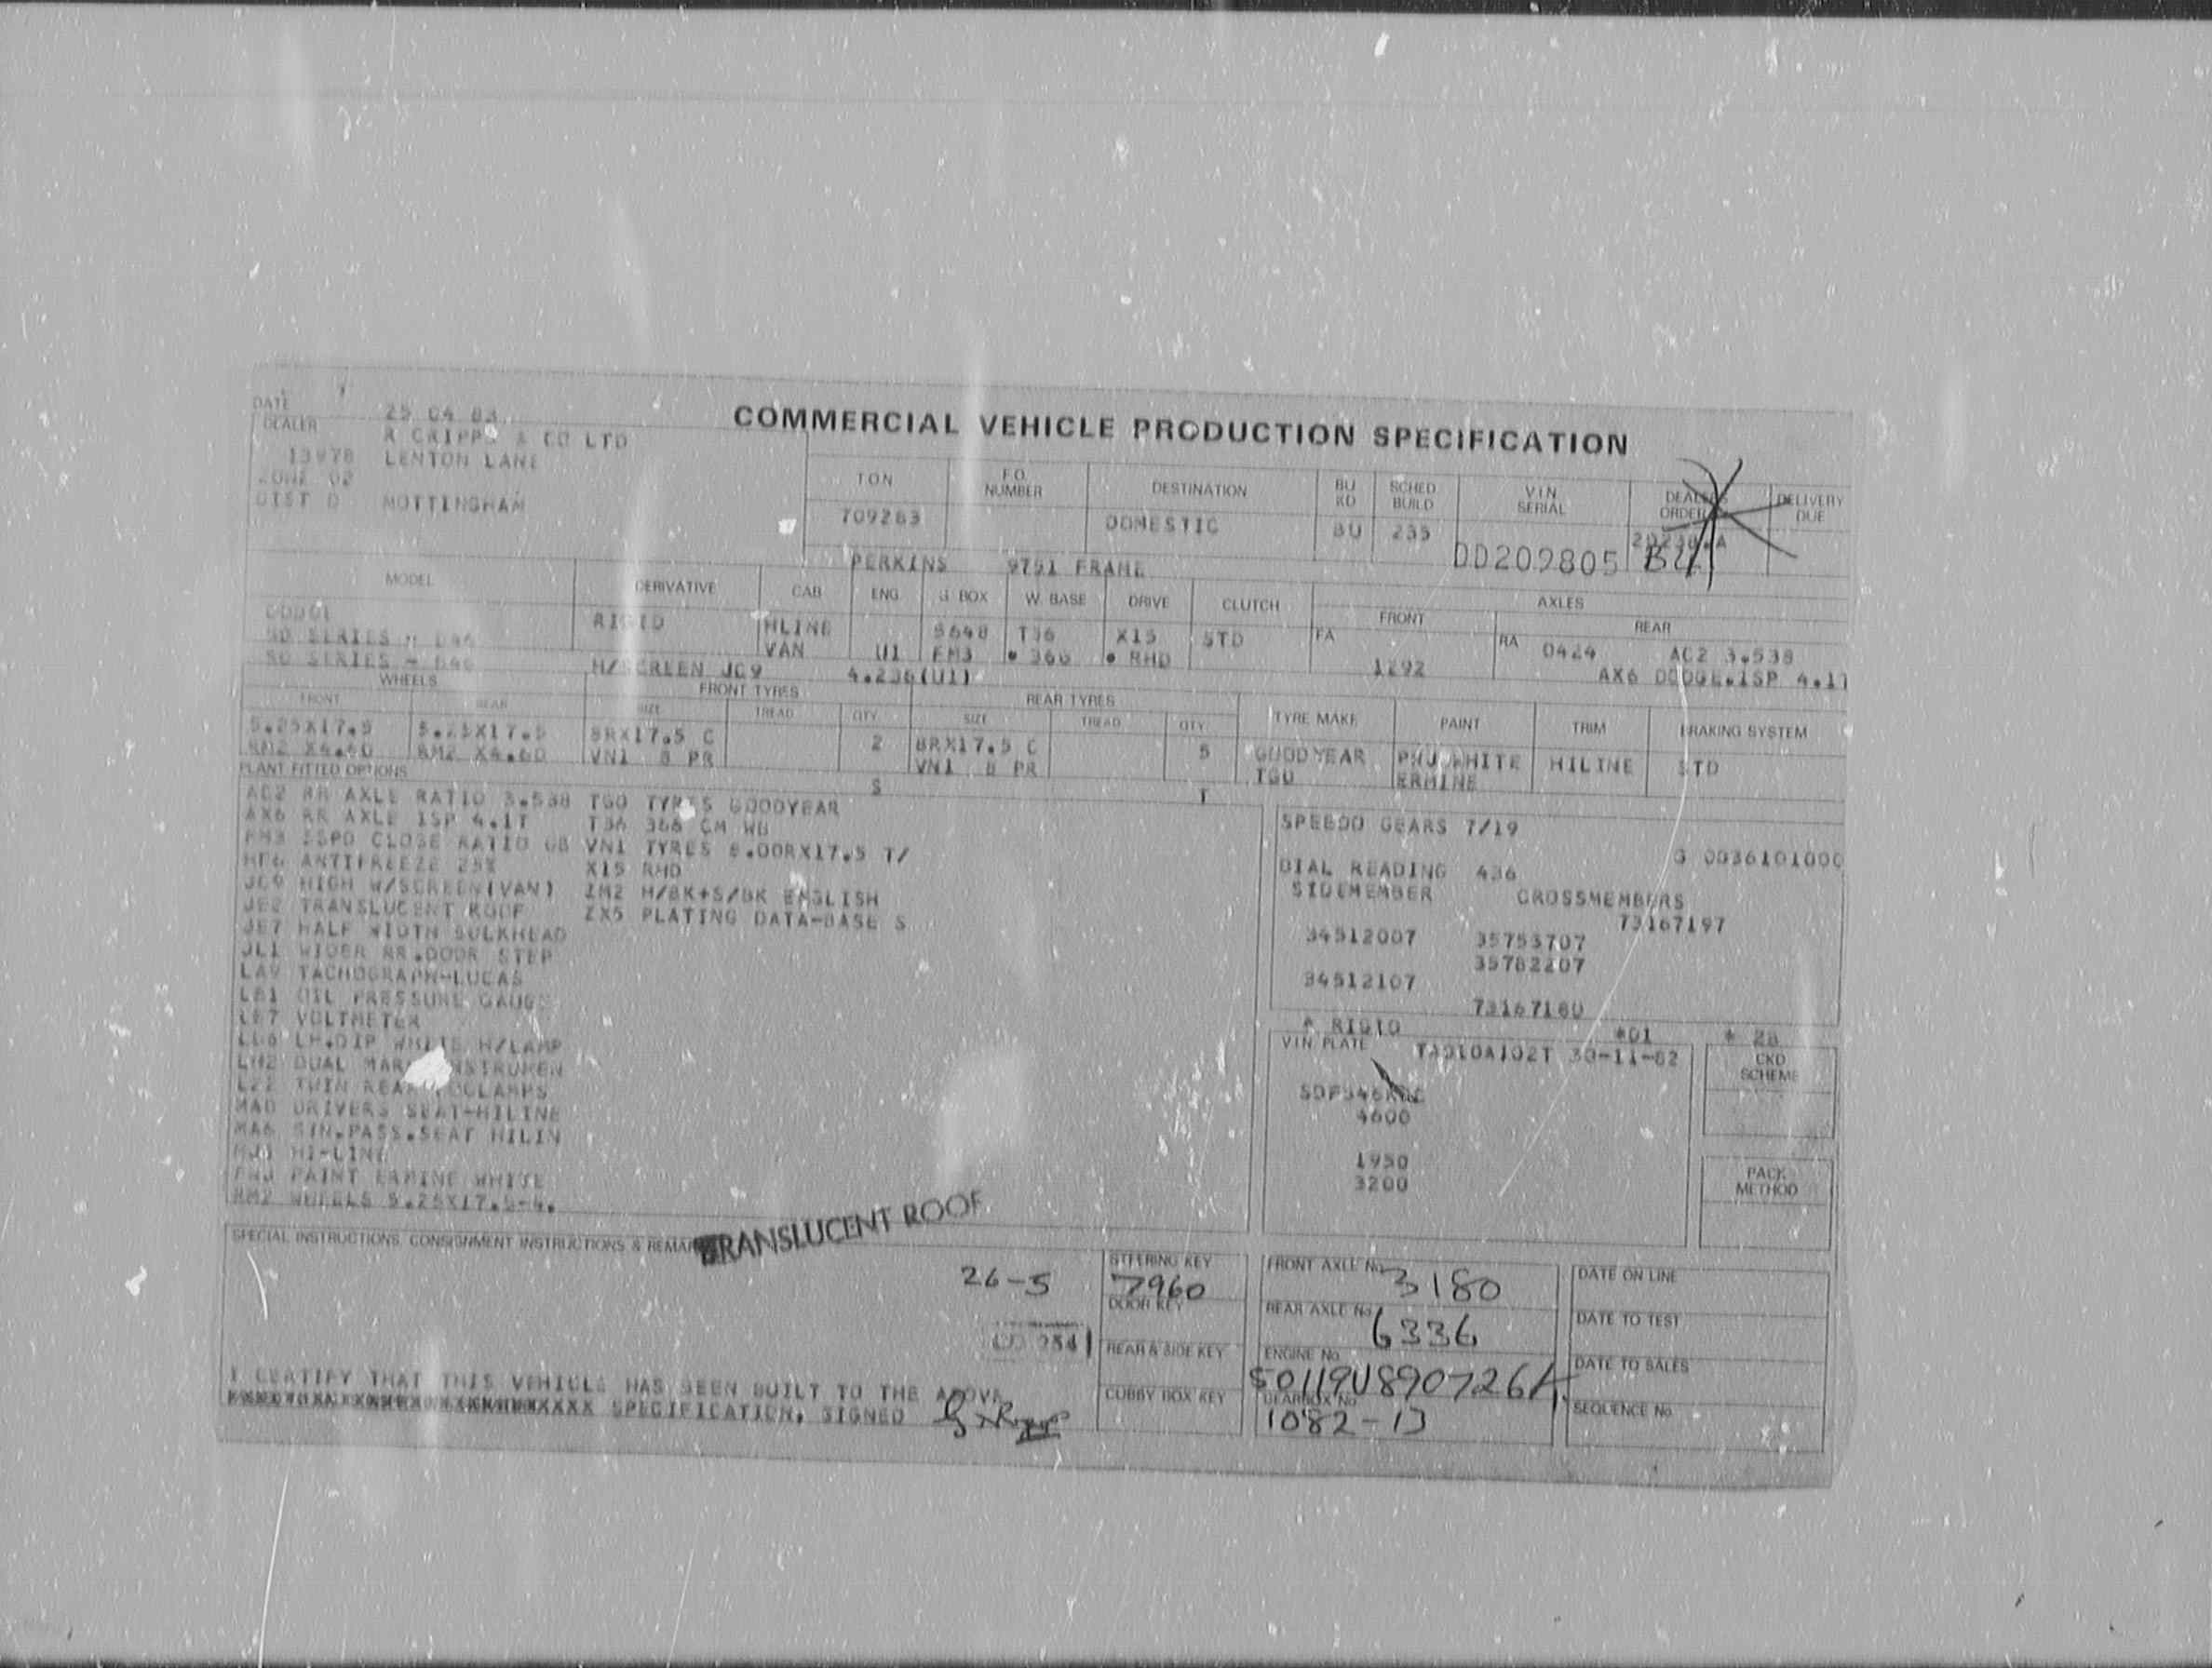 COMMERCIAL VEHICLE PRODUCTION SPECIFICATION
DATE 25 04 83
DEALER R CRIPPS & CO LTD
13978 LENTON LANE
ZONE 02
DIST D NOTTINGHAM
TON F.O. NUMBER DESTINATION BU KD SCHED BUILD V.I.N. SERIAL DEALERS ORDER DELIVERY DUE
709263 DOMESTIC BU 235 DD209805
PERKINS 9751 FRAME
MODEL DERIVATIVE CAB ENG G BOX W. BASE DRIVE CLUTCH AXLES
FRONT REAR
DODGE RIGID HLINE S648 T36 X15 STD FA RA 0424 AC2 3.538
50 SERIES VAN U1 FM3 • 366 • RHD 1292 AX6 DODGE.ISP 4.1T
50 SERIES H/SCREEN JC9 4.236(U1)
WHEELS FRONT TYRES REAR TYRES
FRONT REAR SIZE TREAD QTY SIZE TREAD QTY TYRE MAKE PAINT TRIM BRAKING SYSTEM
5.25X17.5 5.25X17.5 8RX17.5 C 2 8RX17.5 C 5 GOODYEAR PNJ WHITE HILINE STD
RM2 X4.60 RM2 X4.60 VN1 8 PR VN1 8 PR TGO ERMINE
PLANT FITTED OPTIONS S T
AC2 RR AXLE RATIO 3.538 TGO TYRES GOODYEAR
AX6 RR AXLE ISP 4.1T T36 366 CM WB
FM3 5SPD CLOSE RATIO GB VN1 TYRES 8.00RX17.5 T/
HF6 ANTIFREEZE 25% X15 RHD
JC9 HIGH W/SCREEN(VAN) ZM2 H/BK+S/BK ENGLISH
JE2 TRANSLUCENT ROOF ZX5 PLATING DATA-BASE S
JE7 HALF WIDTH BULKHEAD
JL1 WIDER RR.DOOR STEP
LA9 TACHOGRAPH-LUCAS
LB1 OIL PRESSURE GAUGE
LB7 VOLTMETER
LD6 LH.DIP WHITE H/LAMP
LH2 DUAL MAR NSTRUMEN
LZ2 TWIN REAR OGLAMPS
MAD DRIVERS SEAT-HILINE
MA6 SIN.PASS.SEAT HILIN
HI-LINE
PNJ PAINT ERMINE WHITE
RM2 WHEELS 5.25X17.5-4.
SPEEDO GEARS 7/19
G 0036101000
DIAL READING 436
SIDEMEMBER CROSSMEMBERS
73167197
34512007 35753707
35782207
34512107
73167180
* RIGID *01 * 28
VIN PLATE 30-11-82
4600
1950
3200
CKD SCHEME
PACK METHOD
SPECIAL INSTRUCTIONS, CONSIGNMENT INSTRUCTIONS & REMARKS
TRANSLUCENT ROOF
26-5
STEERING KEY 7960
DOOR KEY
REAR & SIDE KEY
CUBBY BOX KEY
FRONT AXLE No. 3180
REAR AXLE No. 6336
ENGINE No. 50119U890726A
GEARBOX No. 1082-13
DATE ON LINE
DATE TO TEST
DATE TO SALES
SEQUENCE No.
I CERTIFY THAT THIS VEHICLE HAS BEEN BUILT TO THE ABOVE
SPECIFICATION, SIGNED